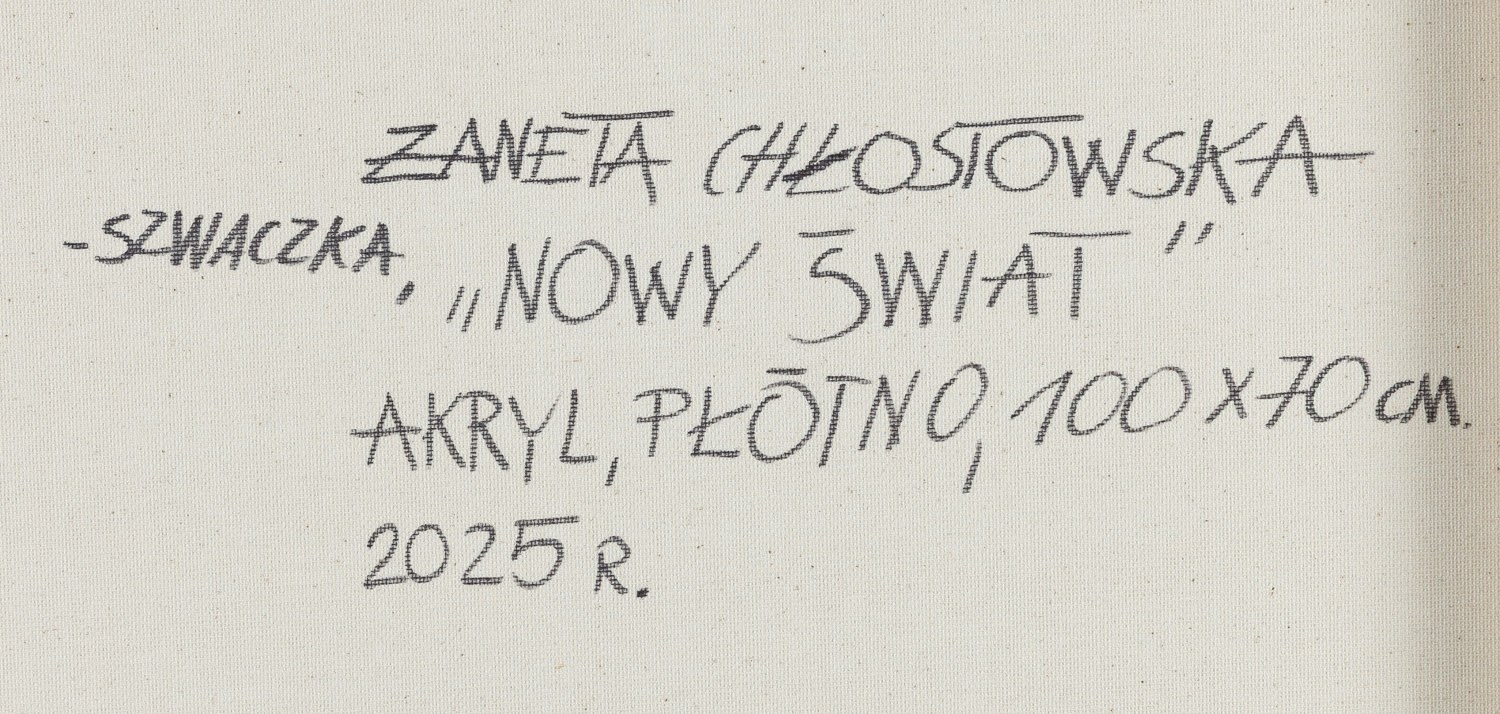 ŻANETA CHŁOSTOWSKA
-SZWACZKA, „NOWY ŚWIAT"
AKRYL, PŁÓTNO, 100 x 70 CM.
2025 R.